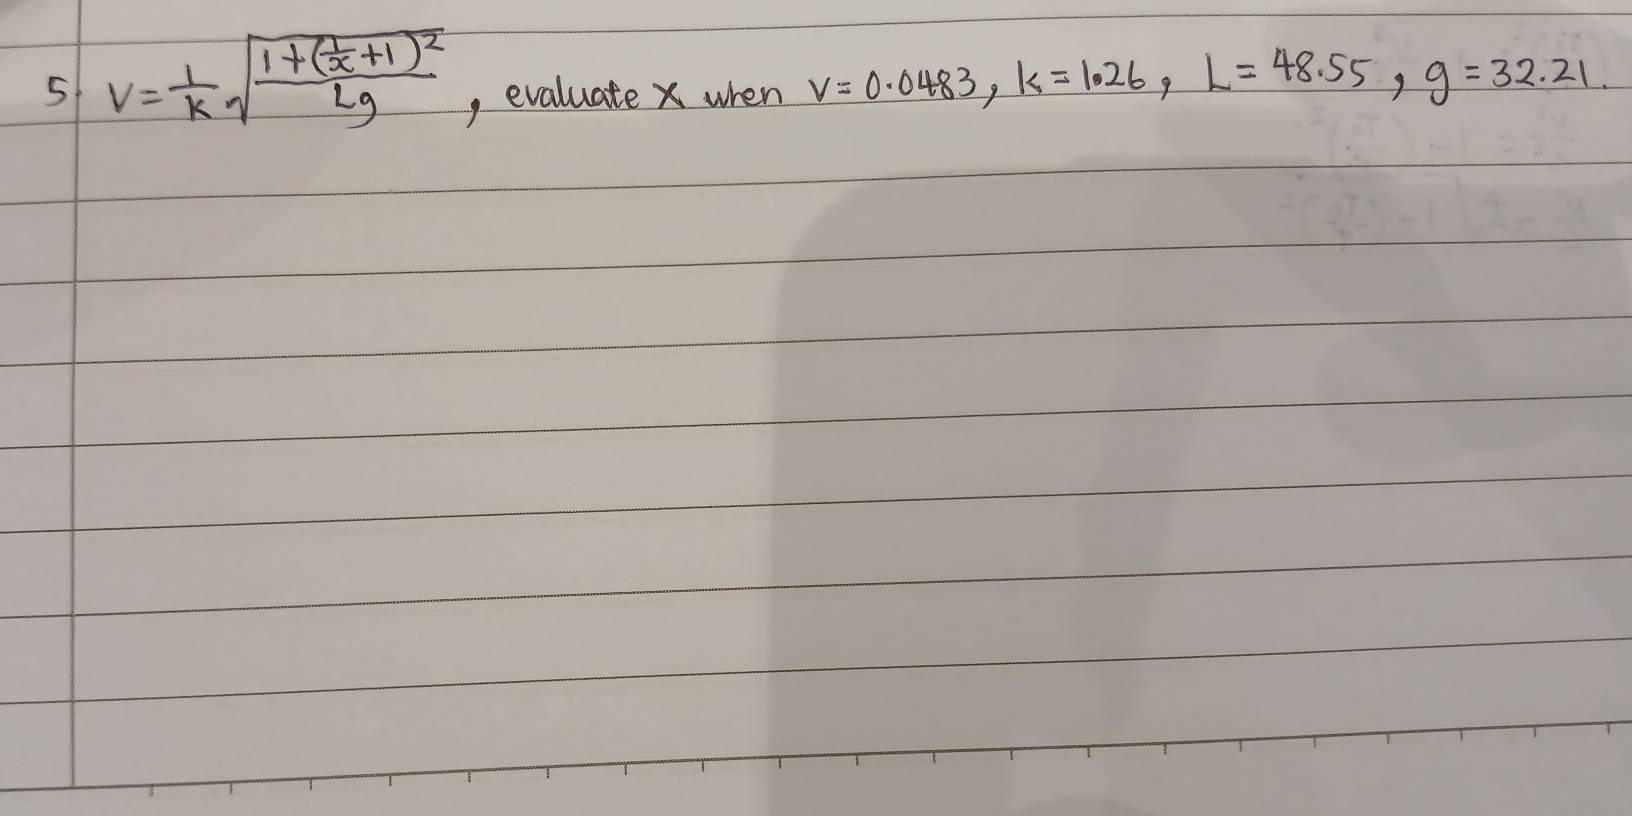 5 V = 1/k √((1+(1/x+1)²)/Lg), evaluate x when v = 0.0483, k = 1.26, L = 48.55, g = 32.21.